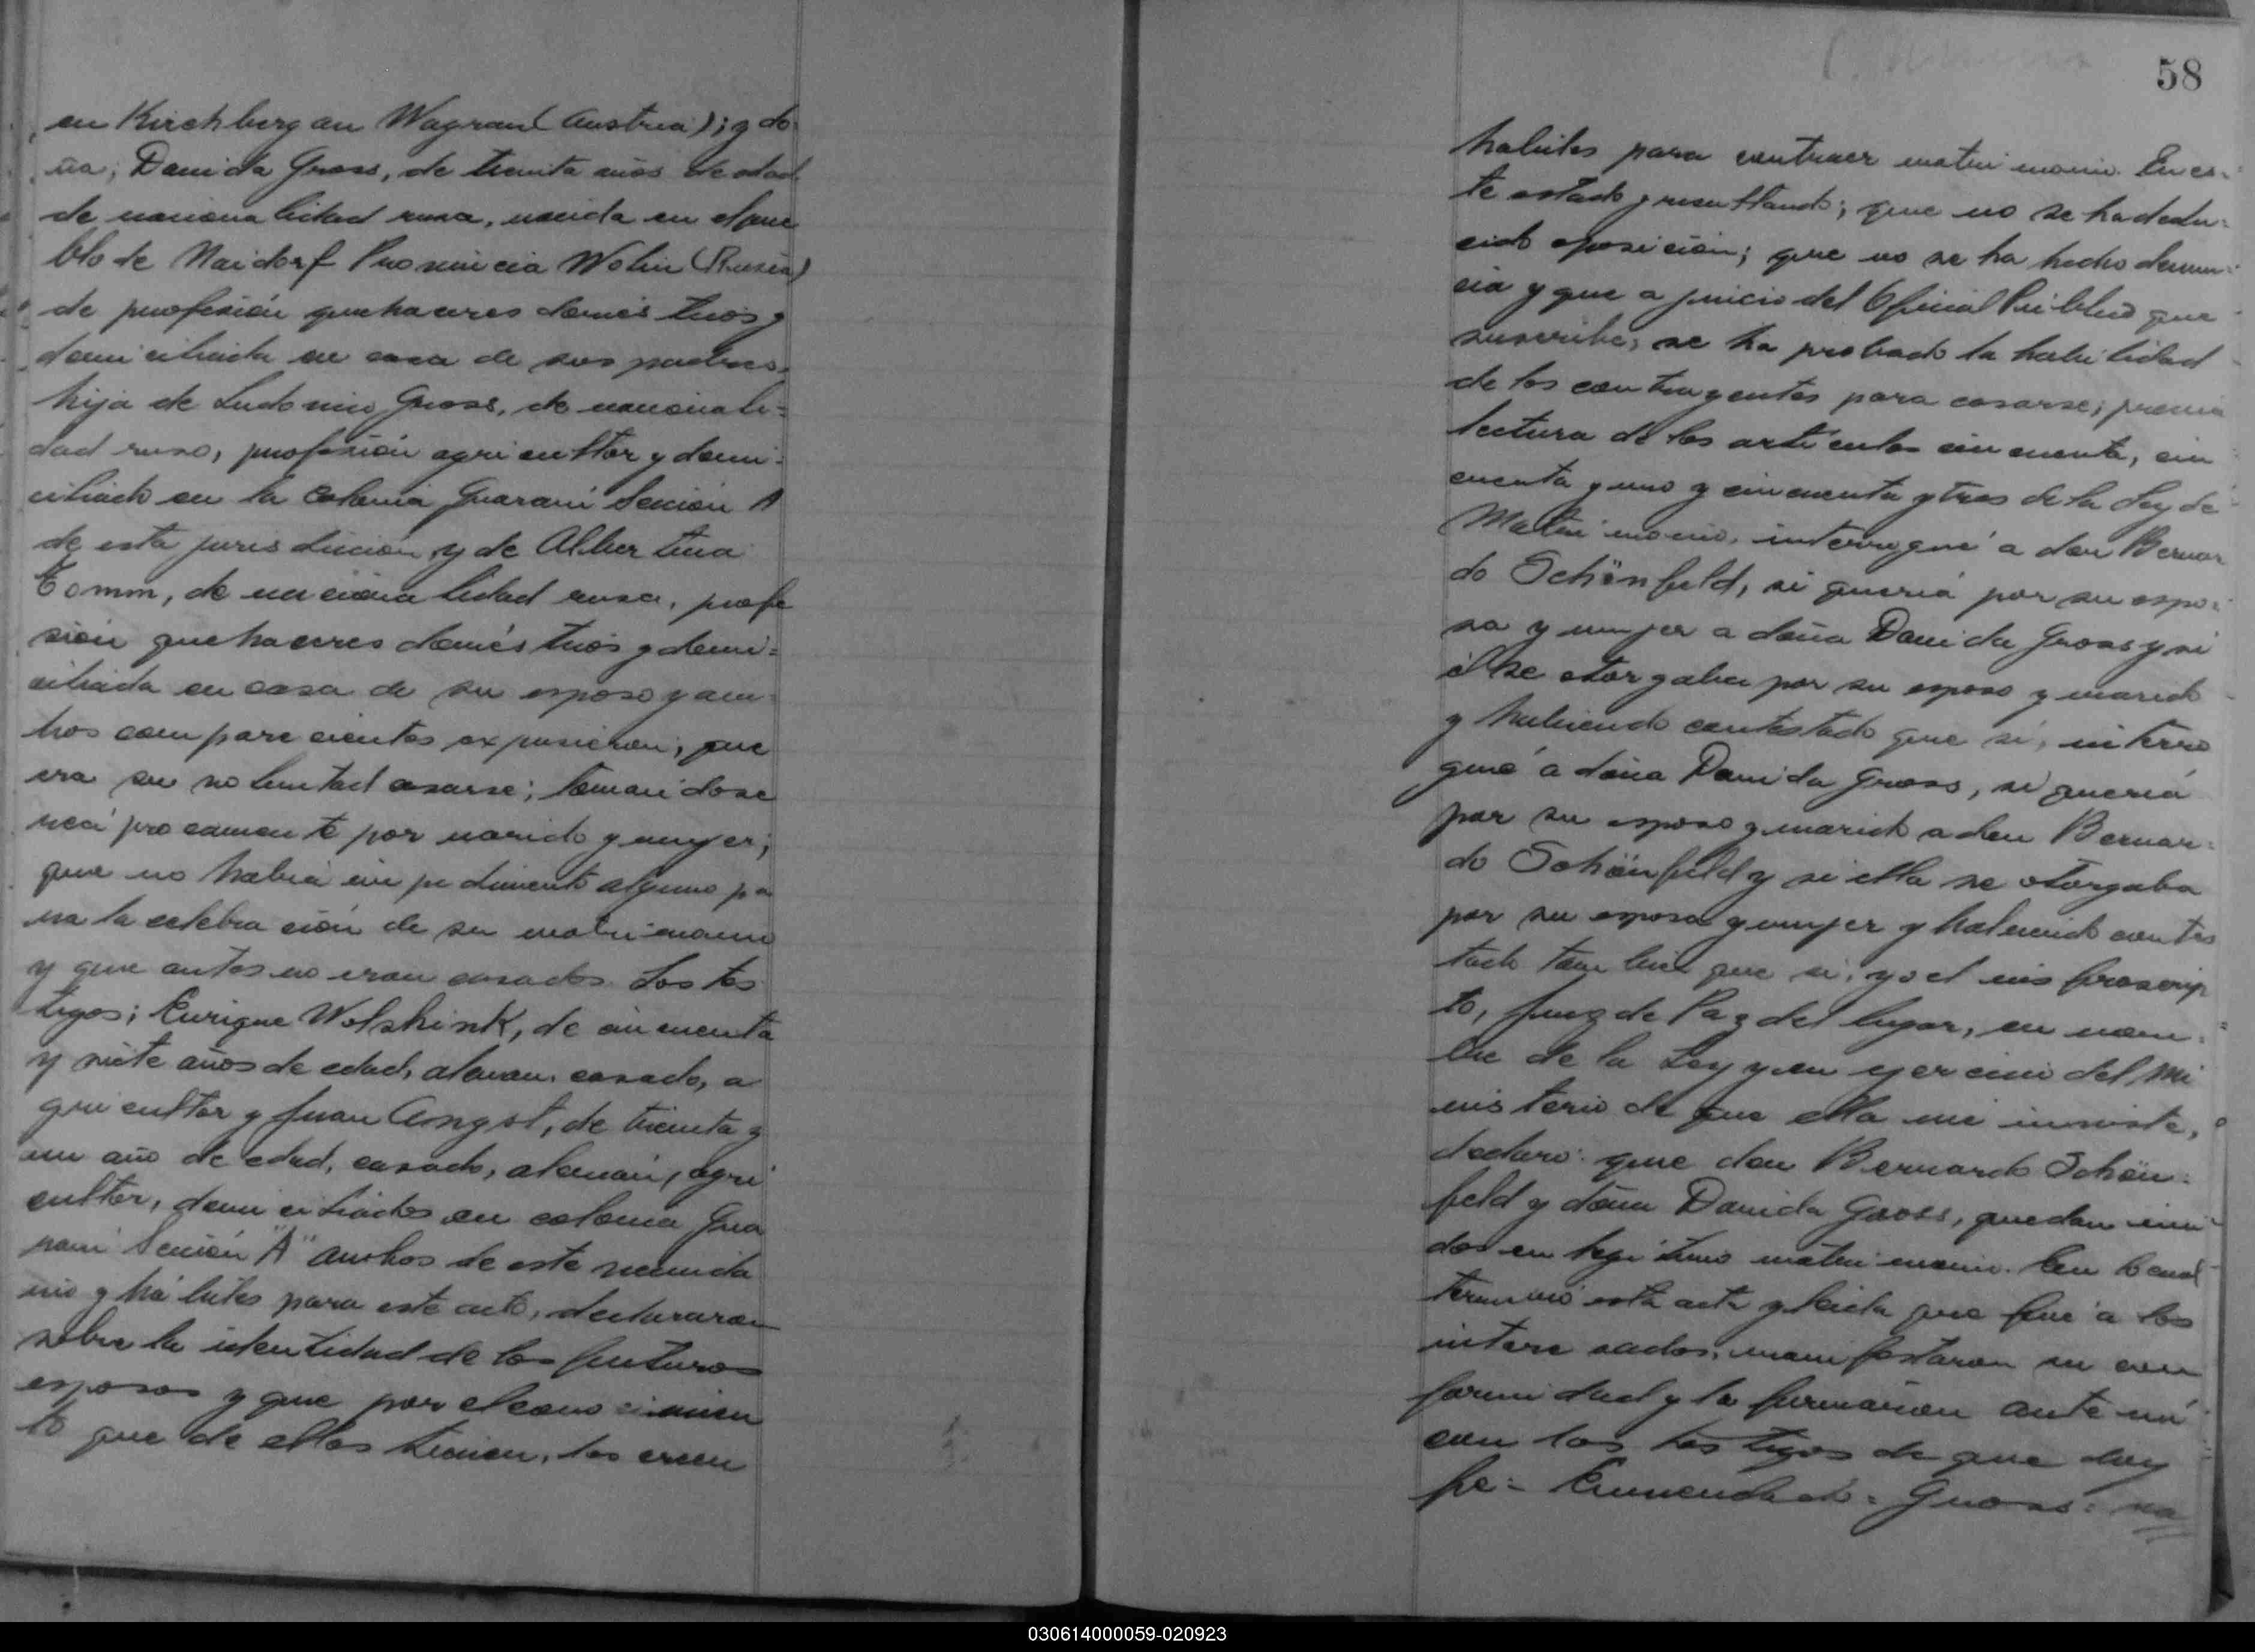 en Kirchberg an Wagram (Austria); y do
ña; Danida Gross, de treinta años de edad
de nacionalidad rusa, nacida en el pue
blo de Naidorf Provincia Wolin (Rusia)
de profesión quehaceres domésticos y
domiciliada en casa de sus padres,
hija de Ludovico Gross, de nacionali=
dad ruso, profesión agricultor y domi=
ciliado en la Colonia Guaraní Sección A
de esta jurisdicción, y de Albertina
Tomm, de nacionalidad rusa, profe
sión quehaceres domésticos y domi=
ciliada en casa de su esposo y am=
bos comparecientes expusieron; que
era su voluntad casarse; tomandose
reciprocamente por marido y mujer;
que no había impedimento alguno pa
ra la celebración de su matrimonio
y que antes no eran casados. Los tes
tigos; Enrique Wolshink, de cincuenta
y siete años de edad, aleman, casado, a
gricultor y Juan Angst, de treinta y
un año de edad, casado, alemán, agri
cultor, domiciliados en colonia Gua
raní Sección "A" ambos de este vecinda
rio y hábiles para este acto, declararon
sobre la identidad de los futuros
esposos y que por el conocimien
to que de ellos tienen, los creen
58
habiles para contraer matrimonio. En es=
te estado y resultando; que no se ha dedu=
cido oposición; que no se ha hecho denun=
cia y que a juicio del Oficial Público que
suscribe, se ha probado la habilidad
de los contrayentes para casarse; previa
lectura de los artículos cincuenta, cin
cuenta y uno y cincuenta y tres de la Ley de
Matrimonio, interrogué a don Bernar
do Schönfeld, si quería por su espo=
sa y mujer a doña Danida Gross y si
él se otorgaba por su esposo y marido
y habiendo contestado que sí, interro
gué a doña Danida Gross, si quería
por su esposo y marido a don Bernar=
do Schönfeld y si ella se otorgaba
por su esposa y mujer y habiendo contes
tado tambien que sí, yo el infrascrip
to, Juez de Paz del lugar, en nom=
bre de la Ley y en ejercicio del Mi
nisterio de que ella me inviste,
declaro: que don Bernardo Schön=
feld y doña Danida Gross, quedan uni=
dos en legítimo matrimonio. Con lo cual
terminó esta acta y leida que fué a los
interesados, manifestaron su con
formidad y la firmaron ante mí
con los testigos de que doy
fe= Enmendado= Gross=
030614000059-020923